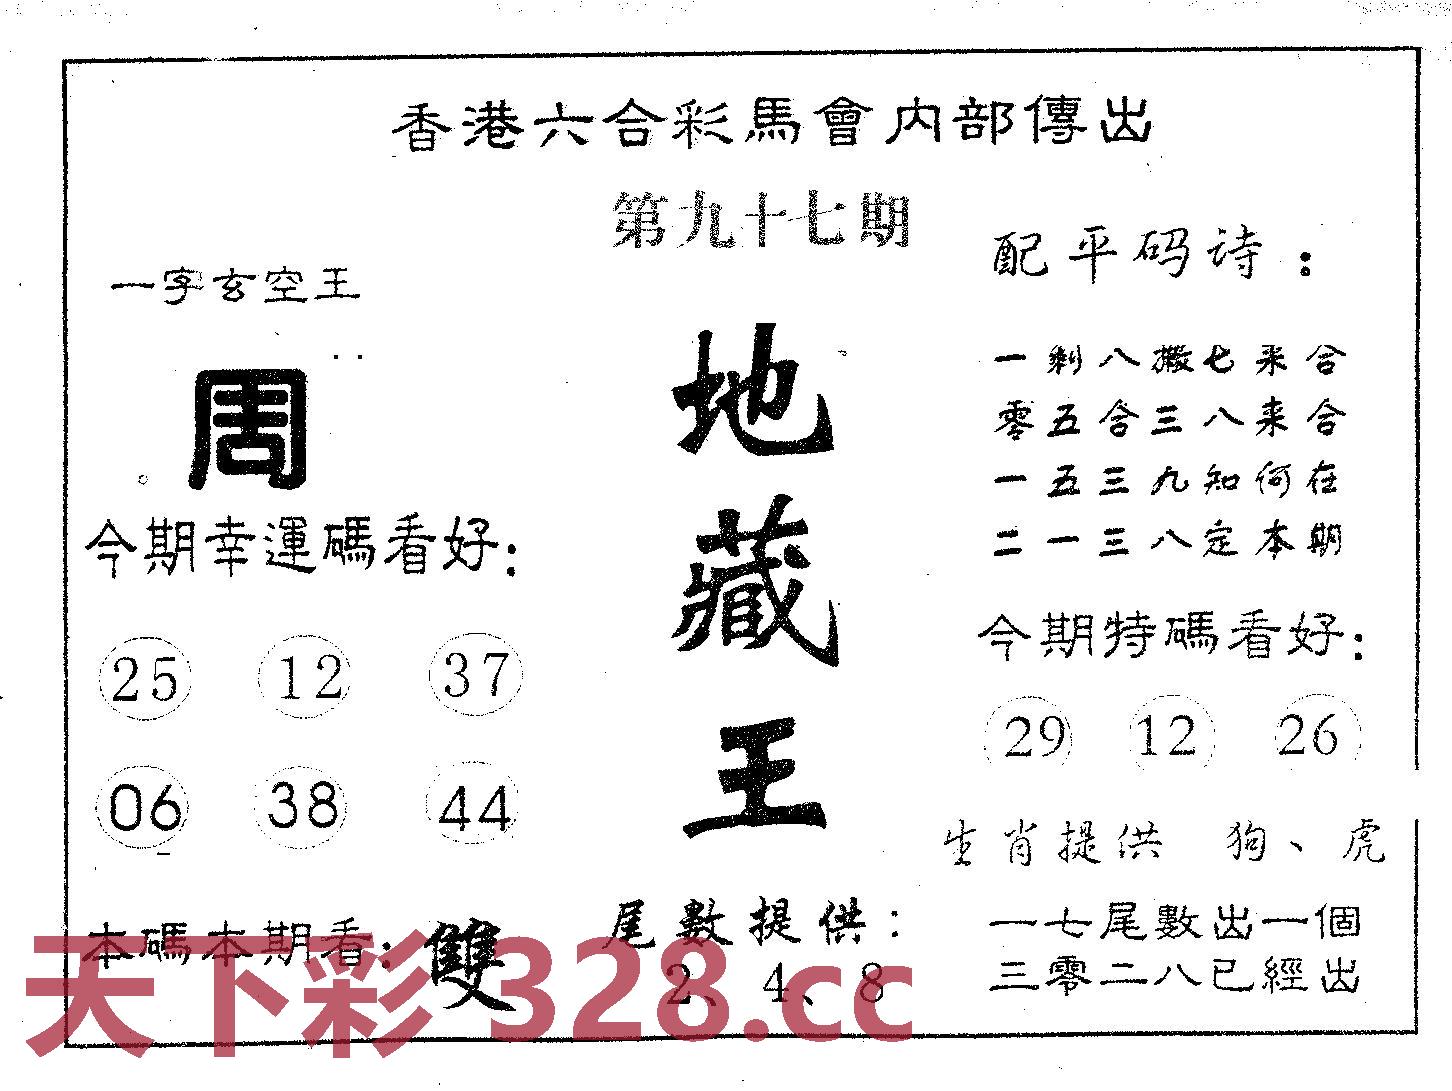 香港六合彩馬會内部傳出
第九十七期
一字玄空王
周
今期幸運碼看好:
25 12 37
06 38 44
本碼本期看: 雙
地藏王
尾數提供:
2、4、8
配平码诗:
一剩八搬七来合
零五合三八来合
一五三九知何在
二一三八定本期
今期特碼看好:
29 12 26
生肖提供 狗、虎
一七尾數出一個
三零二八已經出
天下彩 328.cc